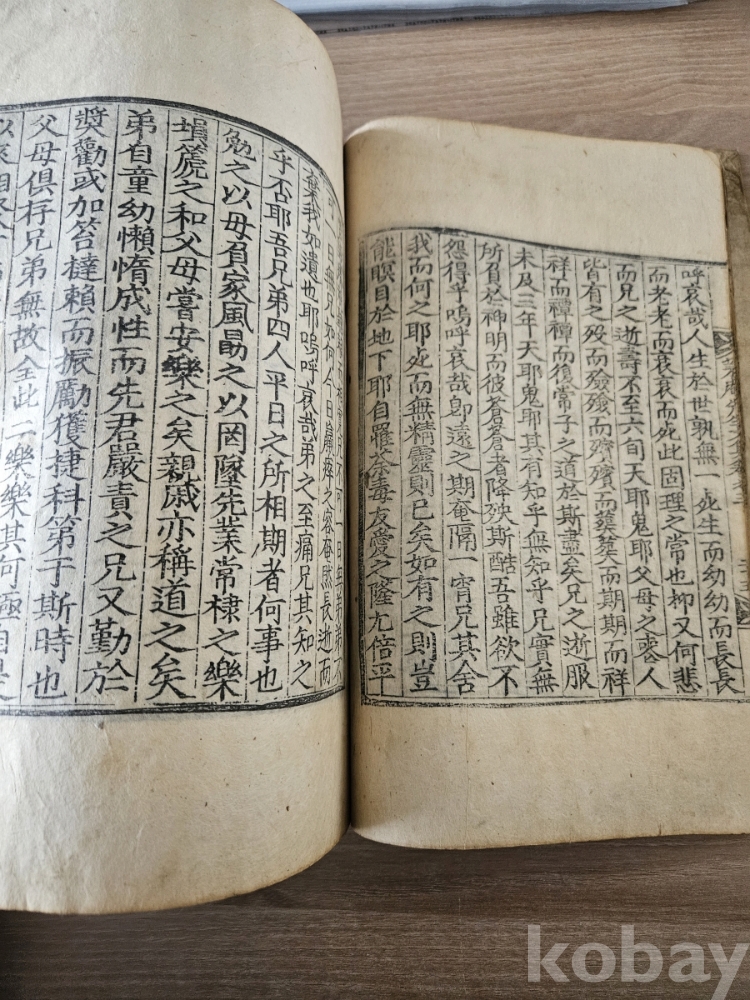 呼哀哉人生於世孰無一死生而幼幼而長長
而老老而衰衰而死此固理之常也抑又何悲
而兄之逝壽不至六旬天耶鬼耶父母之喪人
皆有之歿而殮殮而殯殯而葬葬而期期而祥
祥而禫禫而復常子之道於斯盡矣兄之逝服
未及三年天耶鬼耶其有知乎無知乎兄實無
所負於神明而彼蒼蒼者降殃斯酷吾雖欲不
怨得乎嗚呼哀哉卽遠之期奄隔一宵兄其舍
我而何之耶死而無精靈則已矣如有之則豈
能瞑目於地下耶自罹荼毒友愛之隆尤倍平
兄不可一日無弟弟不
可一日無兄如何今日瘁之容奄然長逝而
棄我如遺也耶嗚呼哀哉弟之至痛兄其知之
乎否耶吾兄弟四人平日之所相期者何事也
勉之以毋負家風勗之以罔墜先業常棣之樂
塤篪之和父母嘗安樂之矣親戚亦稱道之矣
弟自童幼懶惰成性而先君嚴責之兄又勤於
奬勸或加笞撻賴而振勵獲捷科第于斯時也
父母俱存兄弟無故全此二樂樂其可極自是
kobay